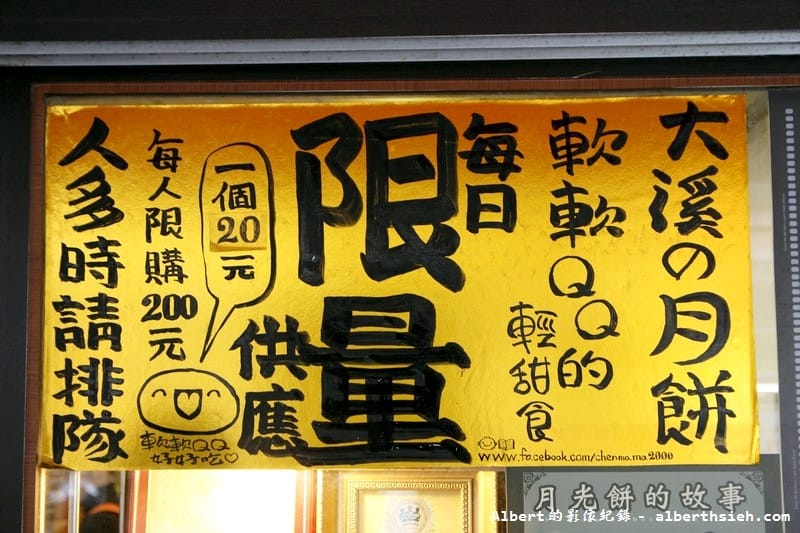 大溪の月餅
軟軟QQ的
輕甜食
每日
限量
供應
一個20元
每人限購200元
人多時請排隊
軟軟QQ
好好吃♡
www.facebook.com/chenmama2000
月光餅的故事
Albert的影像紀錄 - alberthsieh.com